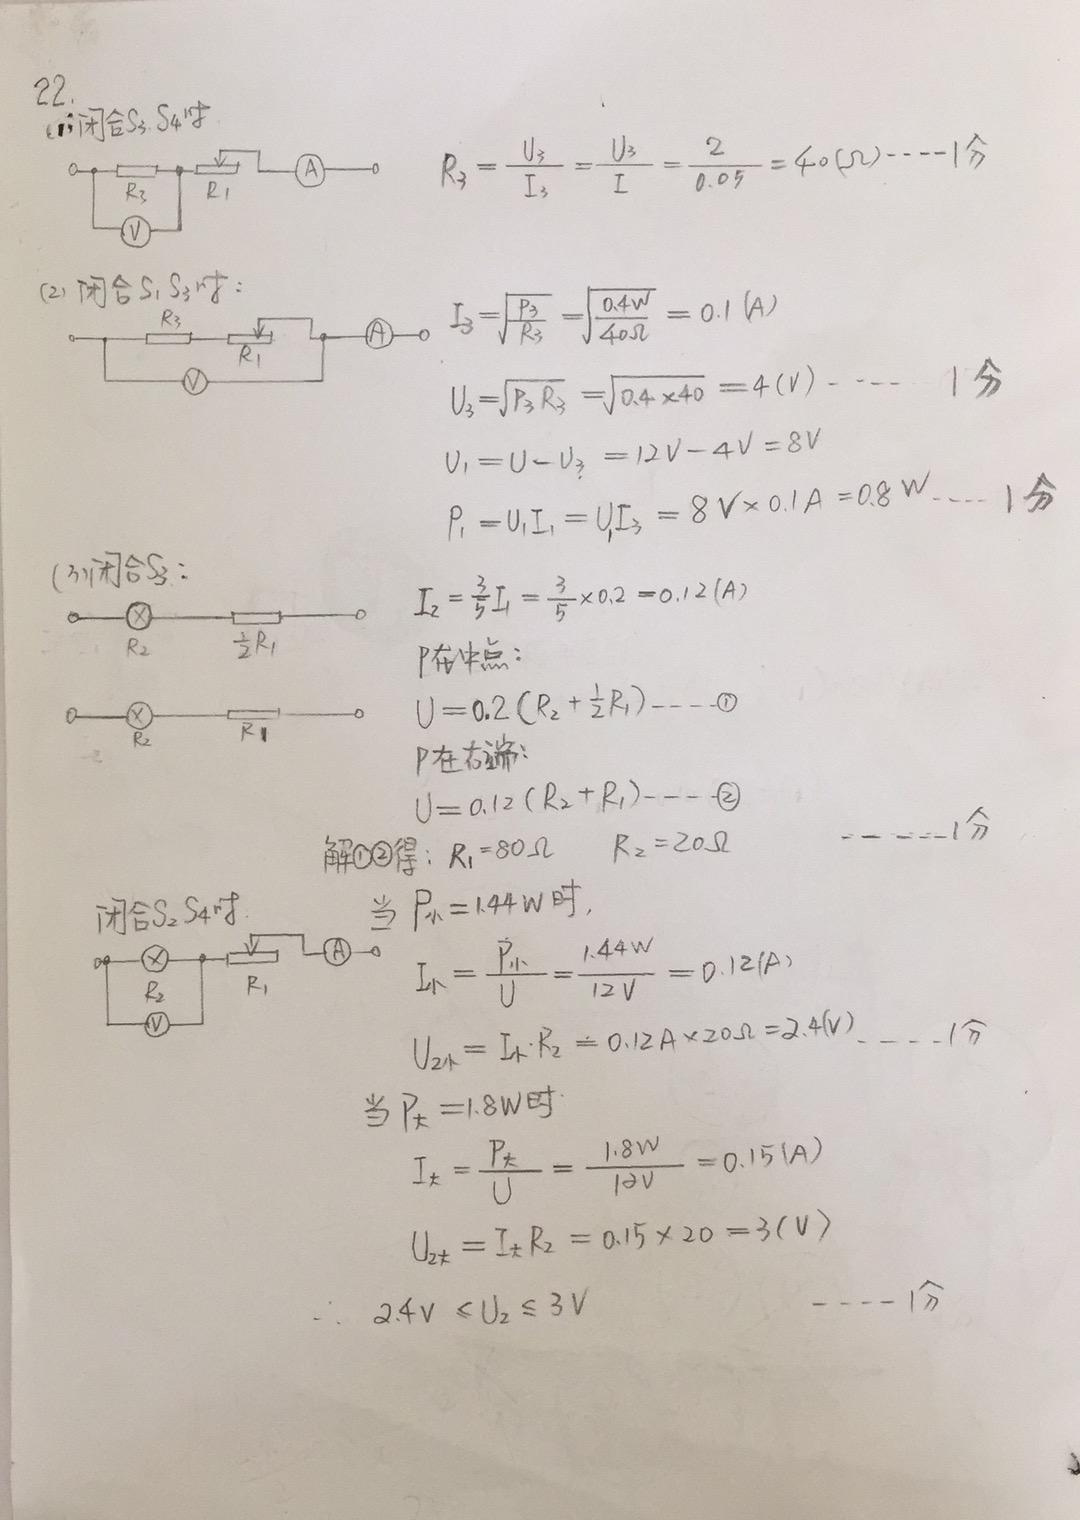 22.
(1) 闭合S3.S4时
R3 = U3/I3 = U3/I = 2/0.05 = 40(Ω)----1分
R3 R1 A
V
(2) 闭合S1 S3时:
R3 R1 A
V
I3 = √(P3/R3) = √(0.4W/40Ω) = 0.1(A)
U3 = √(P3R3) = √(0.4×40) = 4(V)----- 1分
U1 = U - U3 = 12V - 4V = 8V
P1 = U1I1 = U1I3 = 8V × 0.1A = 0.8W----1分
(3) 闭合S3:
R2 ½R1
R2 R1
I2 = 3/5 I1 = 3/5 × 0.2 = 0.12(A)
P在中点:
U = 0.2(R2 + ½R1)----①
P在右端:
U = 0.12(R2 + R1)----②
解①②得: R1 = 80Ω R2 = 20Ω -----1分
闭合S2 S4时.
R2 R1 A
V
当P小 = 1.44W时,
I小 = P小/U = 1.44W/12V = 0.12(A)
U2小 = I小·R2 = 0.12A × 20Ω = 2.4(V)----1分
当P大 = 1.8W时
I大 = P大/U = 1.8W/12V = 0.15(A)
U2大 = I大R2 = 0.15 × 20 = 3(V)
∴ 2.4V ≤ U2 ≤ 3V ----1分